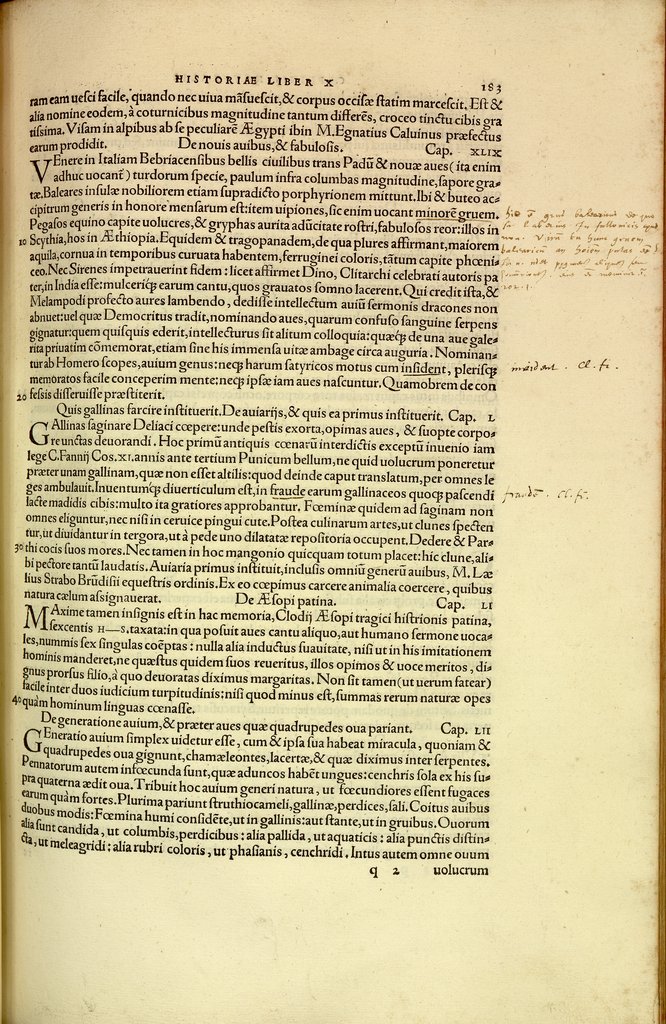 HISTORIAE LIBER X
183
ram eam uesci facile, quando nec uiua mãsuescit, & corpus occisæ statim marcescit. Est &
alia nomine eodem, à coturnicibus magnitudine tantum differẽs, croceo tinctu cibis gra
tissima. Visam in alpibus ab se peculiarẽ Ægypti ibin M. Egnatius Caluinus præfectus
earum prodidit. De nouis auibus, & fabulosis. Cap. XLIX
VEnere in Italiam Bebriacensibus bellis ciuilibus trans Padũ & nouæ aues (ita enim
adhuc uocant) turdorum specie, paulum infra columbas magnitudine, sapore gra-
tæ. Baleares insulæ nobiliorem etiam supradicto porphyrionem mittunt. Ibi & buteo ac-
cipitrum generis in honore mensarum est: item uipiones, sic enim uocant minorẽ gruem.
Pegasos equino capite uolucres, & gryphas aurita adũcitate rostri, fabulosos reor: illos in
10 Scythia, hos in Æthiopia. Equidem & tragopanadem, de qua plures affirmant, maiorem
aquila, cornua in temporibus curuata habentem, ferruginei coloris, tãtum capite phœni-
ceo. Nec Sirenes impetrauerint fidem: licet affirmet Dino, Clitarchi celebrati autoris pa
ter, in India esse: mulceriq́; earum cantu, quos grauatos somno lacerent. Qui credit ista, &
Melampodi profecto aures lambendo, dedisse intellectum auiũ sermonis dracones non
abnuet: uel quæ Democritus tradit, nominando aues, quarum confuso sanguine serpens
gignatur: quem quisquis ederit, intellecturus sit alitum colloquia: quæq́; de una aue gale-
rita priuatim cõmemorat, etiam sine his immensa uitæ ambage circa auguria. Nominan-
tur ab Homero scopes, auium genus: neq; harum satyricos motus cum insident, plerisq;
memoratos facile conceperim mente: neq; ipsæ iam aues nascuntur. Quamobrem de con
20 fessis disseruisse præstiterit.
Quis gallinas farcire instituerit. De auiarijs, & quis ea primus instituerit. Cap. L
GAllinas saginare Deliaci cœpere: unde pestis exorta, opimas aues, & suopte corpo-
re unctas deuorandi. Hoc primũ antiquis cœnarũ interdictis exceptũ inuenio iam
lege C. Fannij Cos. XI. annis ante tertium Punicum bellum, ne quid uolucrum poneretur
præter unam gallinam, quæ non esset altilis: quod deinde caput translatum, per omnes le
ges ambulauit. Inuentumq́; diuerticulum est, in fraude earum gallinaceos quoq; pascendi
lacte madidis cibis: multo ita gratiores approbantur. Fœminæ quidem ad saginam non
omnes eliguntur, nec nisi in ceruice pingui cute. Postea culinarum artes, ut clunes specten
tur, ut diuidantur in tergora, ut à pede uno dilatatæ repositoria occupent. Dedere & Par-
30 thi cocis suos mores. Nec tamen in hoc mangonio quicquam totum placet: hic clune, ali-
bi pectore tantũ laudatis. Auiaria primus instituit, inclusis omniũ generũ auibus, M. Læ
lius Strabo Brũdisii equestris ordinis. Ex eo cœpimus carcere animalia coercere, quibus
natura cælum assignauerat. De Æsopi patina. Cap. LI
MAxime tamen insignis est in hac memoria, Clodij Æsopi tragici histrionis patina,
sexcentis H—S. taxata: in qua posuit aues cantu aliquo, aut humano sermone uoca-
les, nummis sex singulas coẽptas: nulla alia inductus suauitate, nisi ut in his imitationem
hominis manderet, ne quæstus quidem suos reueritus, illos opimos & uoce meritos, di-
gnus prorsus filio, à quo deuoratas diximus margaritas. Non sit tamen (ut uerum fatear)
facile inter duos iudicium turpitudinis: nisi quod minus est, summas rerum naturæ opes
40 quàm hominum linguas cœnasse.
De generatione auium, & præter aues quæ quadrupedes oua pariant. Cap. LII
GEneratio auium simplex uidetur esse, cum & ipsa sua habeat miracula, quoniam &
quadrupedes oua gignunt, chamæleontes, lacertæ, & quæ diximus inter serpentes.
Pennatorum autem infœcunda sunt, quæ aduncos habẽt ungues: cenchris sola ex his su-
pra quaterna ædit oua. Tribuit hoc auium generi natura, ut fœcundiores essent fugaces
earum quàm fortes. Plurima pariunt struthiocameli, gallinæ, perdices, sali. Coitus auibus
duobus modis: Fœmina humi considẽte, ut in gallinis: aut stante, ut in gruibus. Ouorum
alia sunt candida, ut columbis, perdicibus: alia pallida, ut aquaticis: alia punctis distin-
cta, ut meleagridi: alia rubri coloris, ut phasianis, cenchridi. Intus autem omne ouum
q 2 uolucrum
insident. Cl. fr.
fraudẽ. Cl. fr.